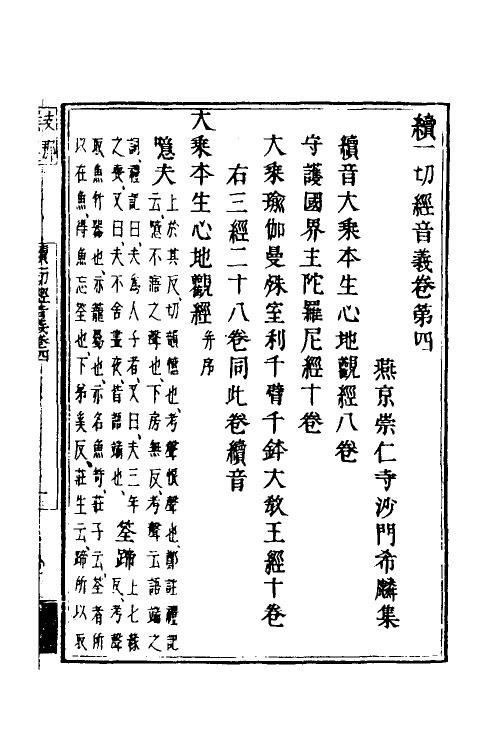 續一切經音義卷第四
燕京崇仁寺沙門希麟集
續音大乘本生心地觀經八卷
守護國界主陀羅尼經十卷
大乘瑜伽曼殊室利千臂千鉢大教王經十卷
右三經二十八卷同此卷續音
大乘本生心地觀經并序
噫夫上於其反切韻憶也考聲恨聲也鄭註禮記
云噫不寤之聲也下房無反考聲云語端之
詞禮記曰夫爲人子者又曰夫三年
之喪又曰夫不舍晝夜皆語端也筌蹄上七緣反考聲
取魚竹器也亦籠屬也亦名魚笱莊子云筌者所
以在魚得魚忘筌也下弟奚反莊生云蹄所以取
支那
續一切經音義卷四